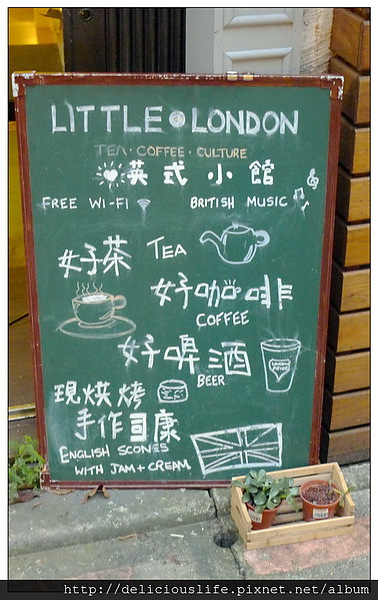 LITTLE LONDON
TEA · COFFEE · CULTURE
英式小館
FREE WI-FI BRITISH MUSIC
好茶 TEA
好咖啡
COFFEE
好啤酒
BEER
現烘烤
手作司康
ENGLISH SCONES
WITH JAM + CREAM
http://deliciouslife.pixnet.net/album